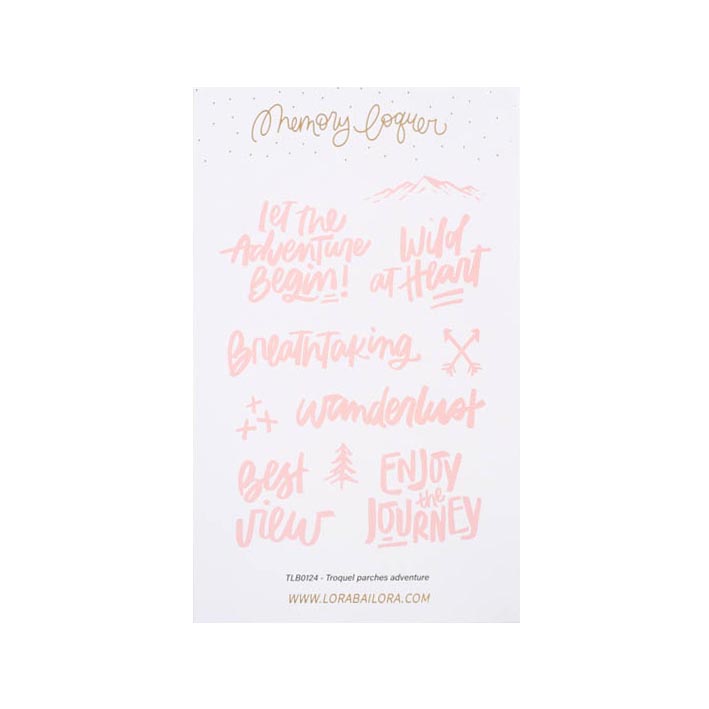 Memory loquer
Let the
Adventure
Begin!
Wild
at Heart
Breathtaking
Wanderlust
Best
View
ENJOY
the
JOURNEY
TLB0124 - Troquel parches adventure
WWW.LORABAILORA.COM